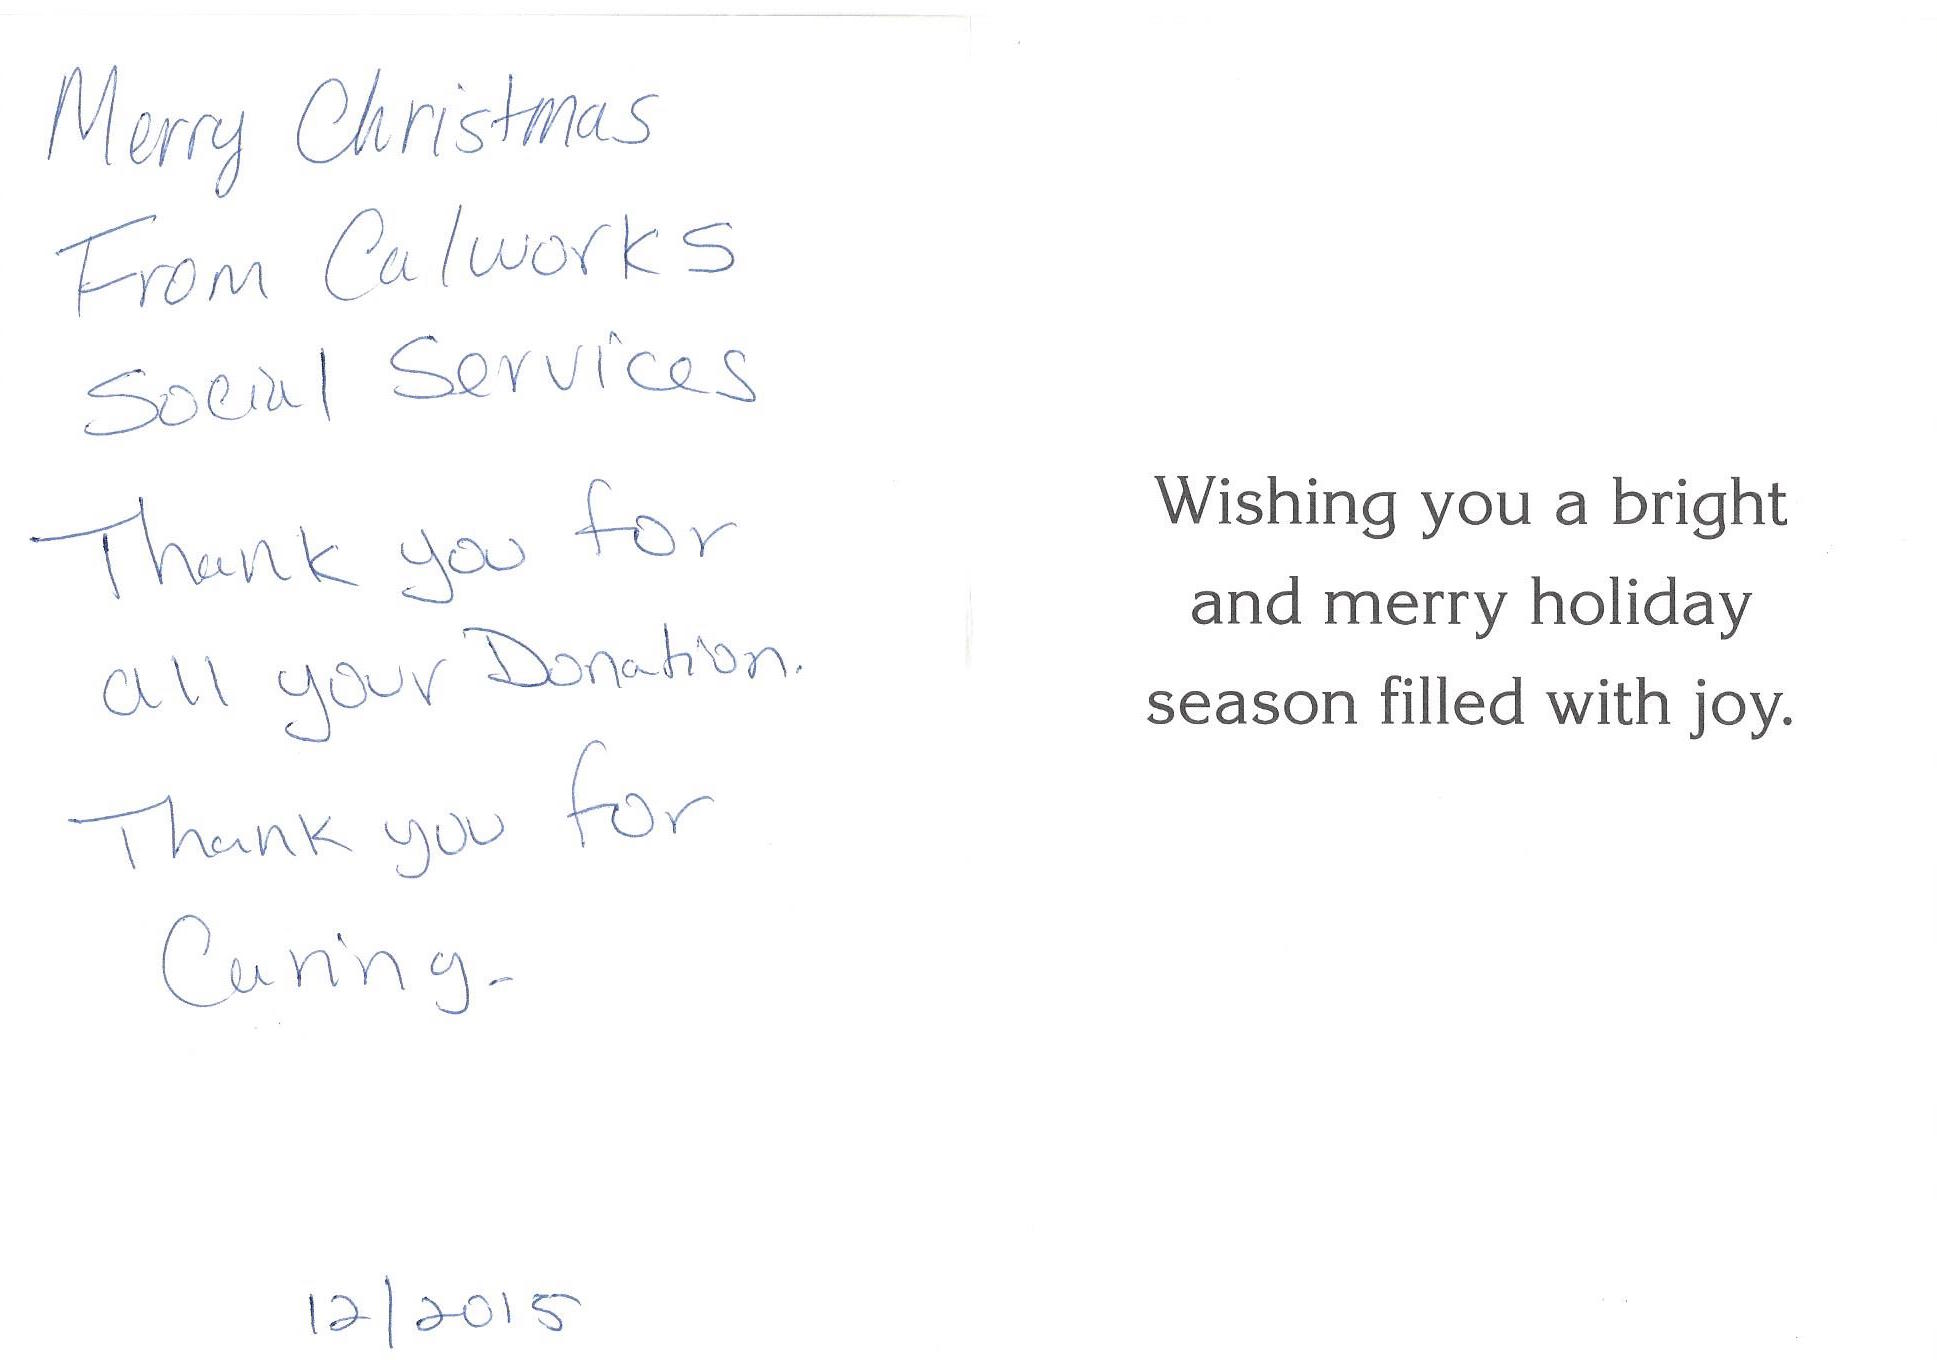 Merry Christmas
From Calworks
Social Services
Thank you for
all your Donation.
Thank you for
Caring.
12/2015
Wishing you a bright
and merry holiday
season filled with joy.